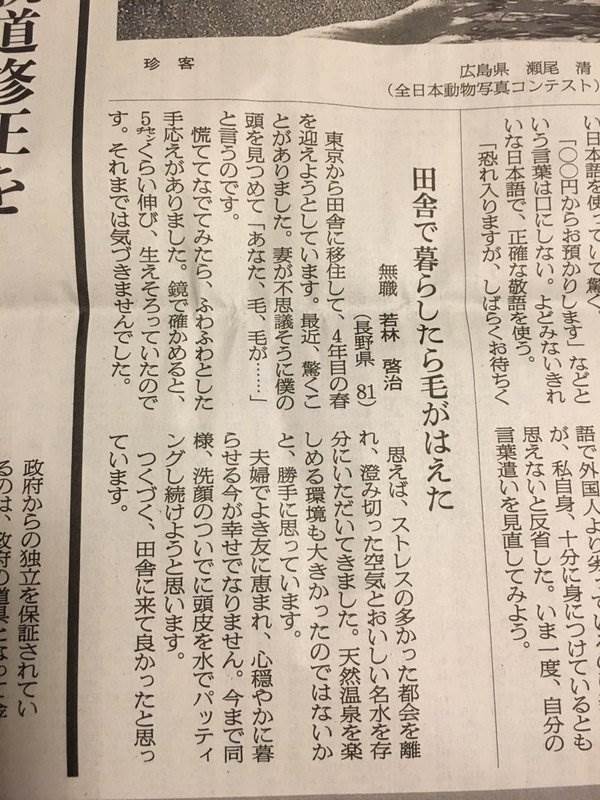 珍客
広島県　瀬尾　清
（全日本動物写真コンテスト）
い日本語を使っていて驚く。
「○○円からお預かりします」などと
いう言葉は口にしない。よどみないきれ
いな日本語で、正確な敬語を使う。
「恐れ入りますが、しばらくお待ちく
が、私自身、十分に身につけているとも
思えないと反省した。いま一度、自分の
言葉遣いを見直してみよう。
田舎で暮らしたら毛がはえた
無職　若林　啓治
（長野県　81）
東京から田舎に移住して、4年目の春
を迎えようとしています。最近、驚くこ
とがありました。妻が不思議そうに僕の
頭を見つめて「あなた、毛、毛が……」
と言うのです。
慌ててなでてみたら、ふわふわとした
手応えがありました。鏡で確かめると、
5㌢くらい伸び、生えそろっていたので
す。それまでは気づきませんでした。
思えば、ストレスの多かった都会を離
れ、澄み切った空気とおいしい名水を存
分にいただいてきました。天然温泉を楽
しめる環境も大きかったのではないか
と、勝手に思っています。
夫婦でよき友に恵まれ、心穏やかに暮
らせる今が幸せでなりません。今まで同
様、洗顔のついでに頭皮を水でパッティ
ングし続けようと思います。
つくづく、田舎に来て良かったと思っ
ています。
道修正を
政府からの独立を保証されてい
るのは、政府の道具になって